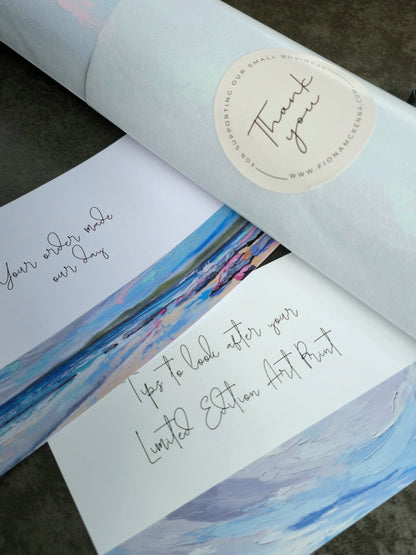 Thank
you
FOR SUPPORTING OUR SMALL BUSINESS
WWW.FIONAMCKENNA.COM
Your order made
our day
Tips to look after your
Limited Edition Art Print